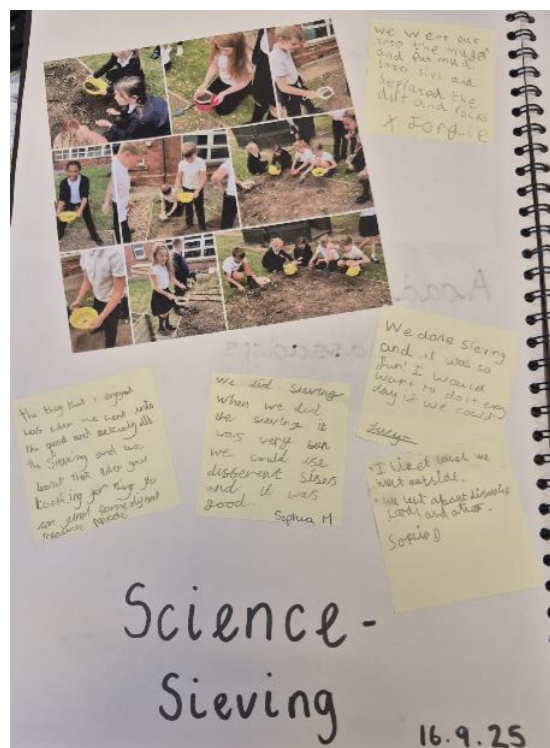 We went out
into the
and put mud
into sivs and
Seplrated the
dirt and rocks
x
We done sieving
and it was so
fun! I would
want to do it every
day if we could
Lucy
the thing that i enjoyed
was when we went into
the and actually did
the Sieving and we
learnt that when your
looking for thing to
can
We did sieving
when we did
the sieving it
was very fun
we could use
different sises
and it was
good.
Sophia M
• I liked when we
went outside.
• we about
and
Sophia D
Science -
Sieving
16.9.25